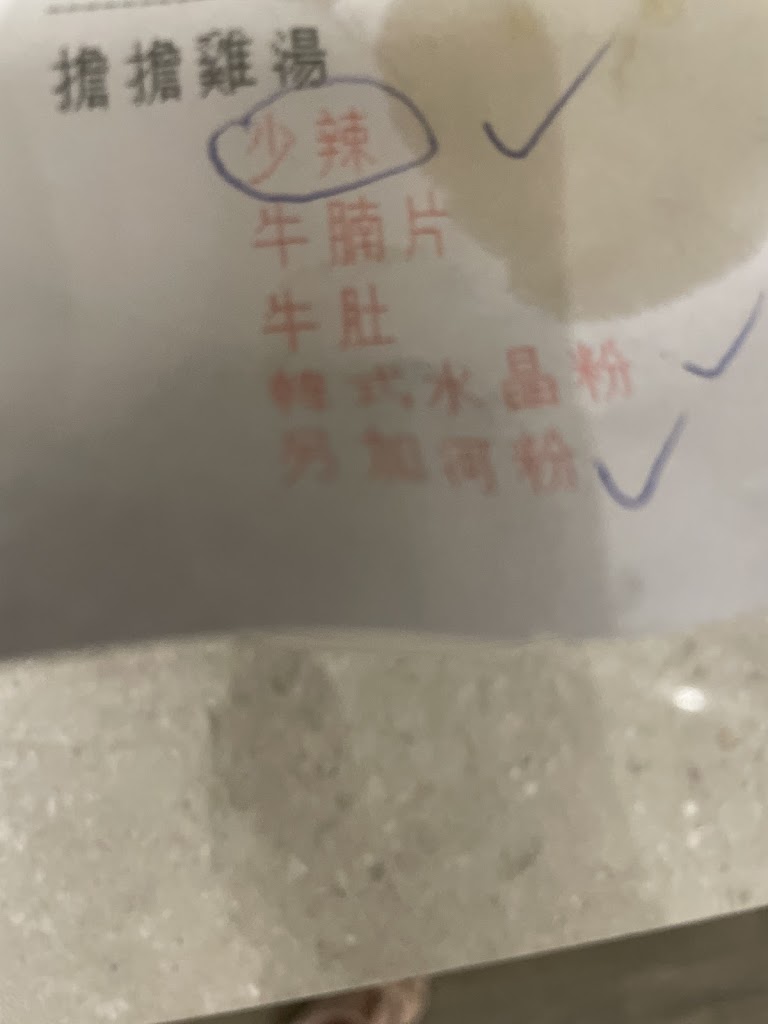 擔擔雞湯
少辣
牛腩片
牛肚
韓式水晶粉
另加河粉